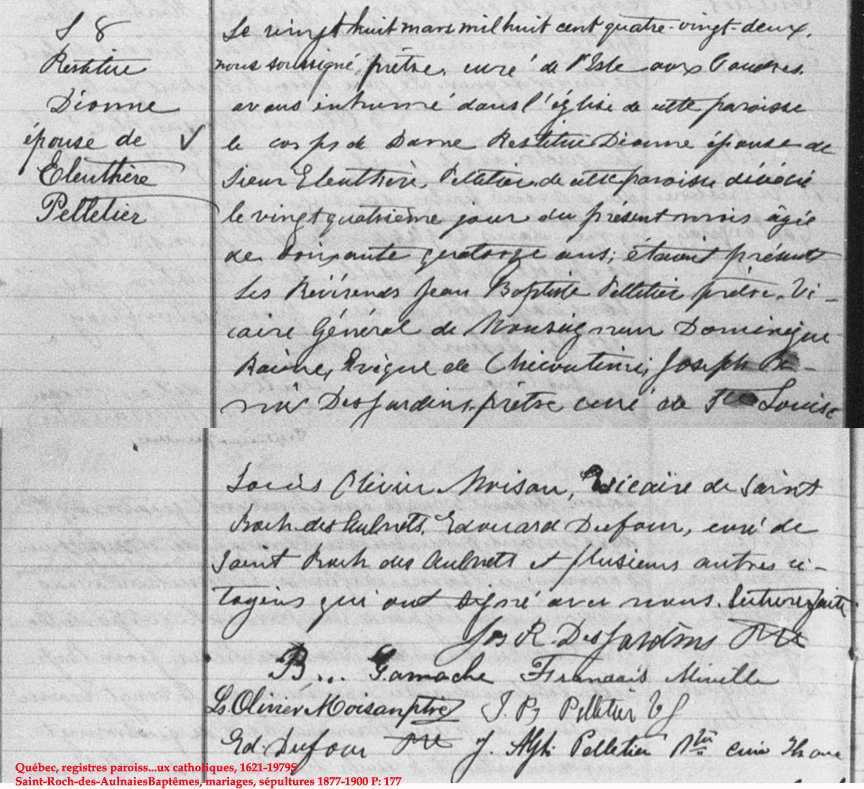 S 8
Restitue
Dionne
épouse de
Eleuthère
Pelletier
Le vingt huit mars mil huit cent quatre-vingt-deux,
nous soussigné, prêtre, curé de l'Isle aux Coudres
avons inhumé dans l'église de cette paroisse
le corps de Dame Restitue Dionne épouse de
Sieur Eleuthère Pelletier de cette paroisse décédée
le vingt quatrième jour du present mois âgée
de soixante quatorze ans; étaient présents
les Révérends Jean Baptiste Pelletier prêtre, Vi-
caire Général de Monseigneur Dominique
Racine, Evêque de Chicoutimi, Joseph Re-
né DesJardins, prêtre curé de Ste Louise
Louis Olivier Moisan, Vicaire de Saint
Roch des Aulnets, Edouard Dufour, curé de
Saint Roch des Aulnets et plusieurs autres ci-
toyens qui ont signé avec nous. Lecture faite.
Jos R. DesJardins Ptre
B... Gamache Francois Miville
Ls. Olivier Moisan ptre J. Bte Pelletier VG
Ed. Dufour Ptre J. Alph. Pelletier Ptre curé
Québec, registres paroiss...ux catholiques, 1621-1979S
Saint-Roch-des-AulnaiesBaptêmes, mariages, sépultures 1877-1900 P: 177